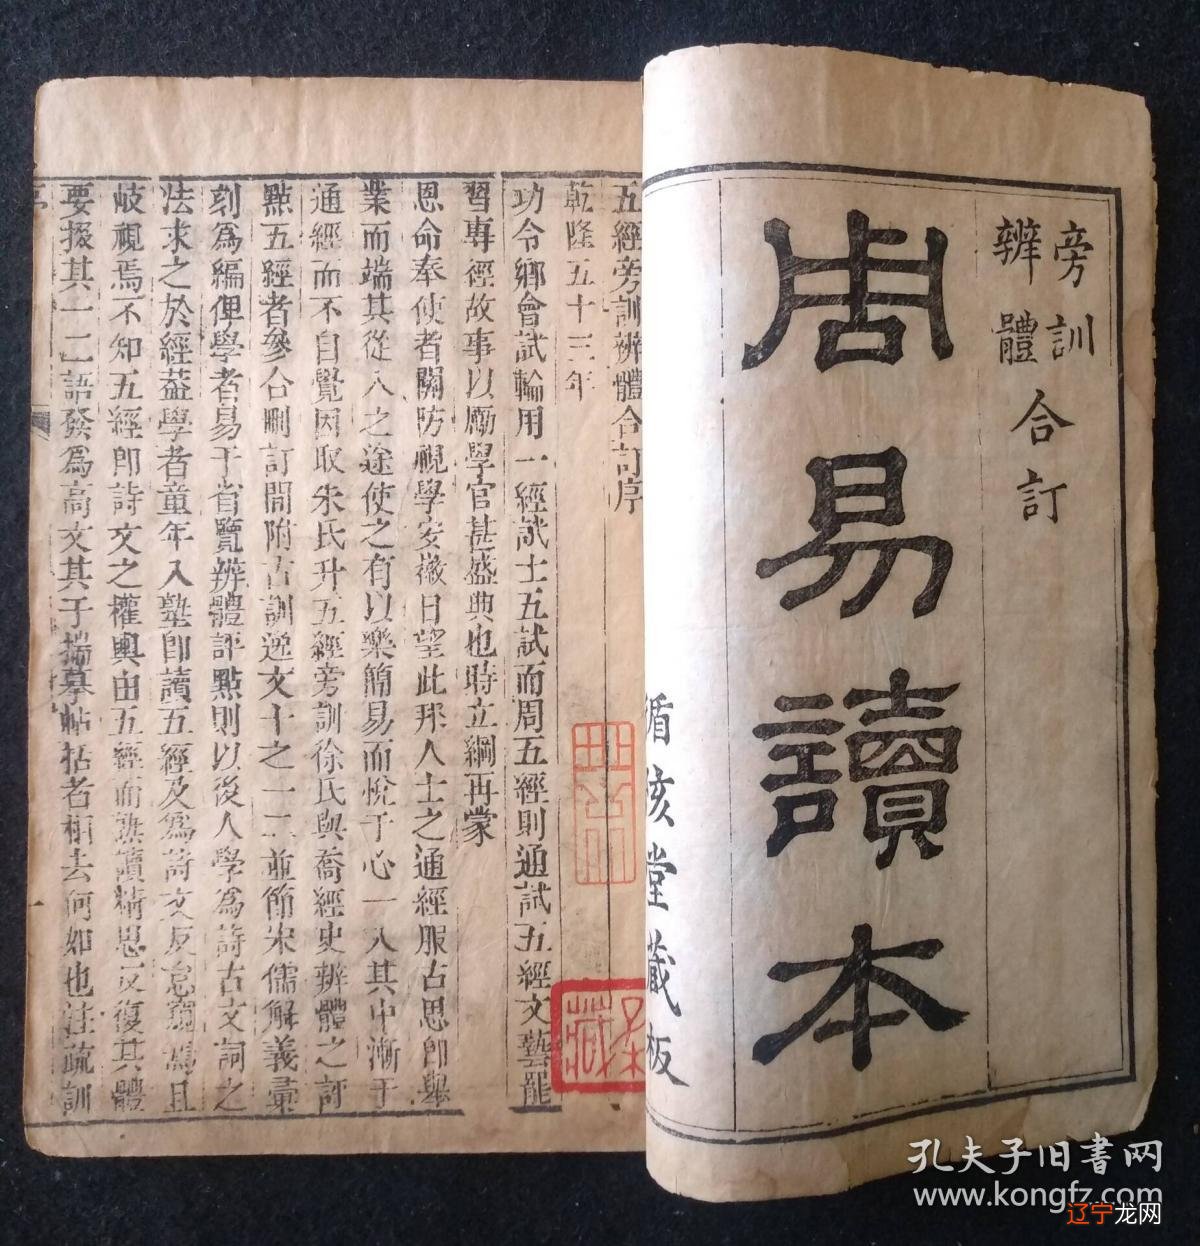 旁訓
辨體
合訂
周易讀本
循陔堂藏板
五經旁訓辨體合訂序
乾隆五十三年
功令鄉會試輪用一經試士五試而周五經則通試五經文藝罷
習專經故事以勵學官甚盛典也時立綱再蒙
恩命奉使者關防視學安徽日望此邦人士之通經服古思即舉
業而端其從入之途使之有以樂簡易而悅于心一入其中漸于
通經而不自覺因取朱氏升五經旁訓徐氏與喬經史辨體之訂
點五經者參合刪訂間附古訓逸文十之一二並節宋儒解義彙
刻爲編俾學者易于省覽辨體評點則以後人學爲詩古文詞之
法求之於經葢學者童年入塾即讀五經及爲詩文反怠窺焉且
岐視焉不知五經即詩文之權輿由五經而熟讀精思反復其體
要掇其一二語發爲高文其于揣摹帖括者相去何如也注疏訓
一
藏
孔夫子旧书网
www.kongfz.com
辽宁龙网